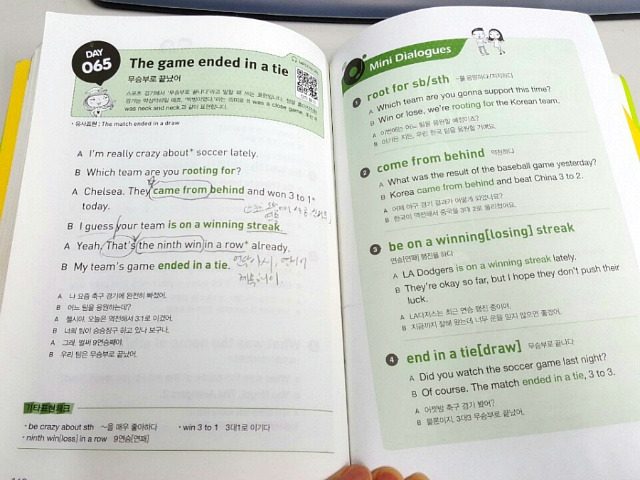 DAY
065
The game ended in a tie
무승부로 끝났어
스포츠 경기에서 '무승부로 끝나다'라고 말할 때 쓰는 표현입니다.
was neck and neck
• 유사표현 : The match ended in a draw
A I'm really crazy about+ soccer lately.
B Which team are you rooting for?
A Chelsea. They came from behind and won 3 to 1+
today.
B I guess your team is on a winning streak.
A Yeah, That's the ninth win in a row+ already.
B My team's game ended in a tie.
A 나 요즘 축구 경기에 완전히 빠졌어.
B 어느 팀을 응원하는데?
A 첼시야. 오늘은 역전해서 3:1로 이겼어.
B 너희 팀이 승승장구 하고 있나 보구나.
A 그래. 벌써 9연승째야.
B 우리 팀은 무승부로 끝났어.
기타표현체크
• be crazy about sth ~을 매우 좋아하다
• win 3 to 1 3대1로 이기다
• ninth win[loss] in a row 9연승[연패]
Mini Dialogues
1 root for sb/sth ~을 응원하다/지지하다
A Which team are you gonna support this time?
B Win or lose, we're rooting for the Korean team.
A 이번에는 어느 팀을 응원할 예정이죠?
B 이기든 지든, 우린 한국 팀을 응원할 거예요.
2 come from behind 역전하다
A What was the result of the baseball game yesterday?
B Korea came from behind and beat China 3 to 2.
A 어제 야구 경기 결과가 어떻게 되었나요?
B 한국이 역전해서 중국을 3대 2로 물리쳤어요.
3 be on a winning[losing] streak
연승[연패] 행진을 하다
A LA Dodgers is on a winning streak lately.
B They're okay so far, but I hope they don't push their
luck.
A LA다저스는 최근 연승 행진 중이야.
B 지금까지 잘해 왔는데, 너무 운을 믿지 않으면 좋겠어.
4 end in a tie[draw] 무승부로 끝나다
A Did you watch the soccer game last night?
B Of course. The match ended in a tie, 3 to 3.
A 어젯밤 축구 경기 봤어?
B 물론이지. 3대3 무승부로 끝났어.